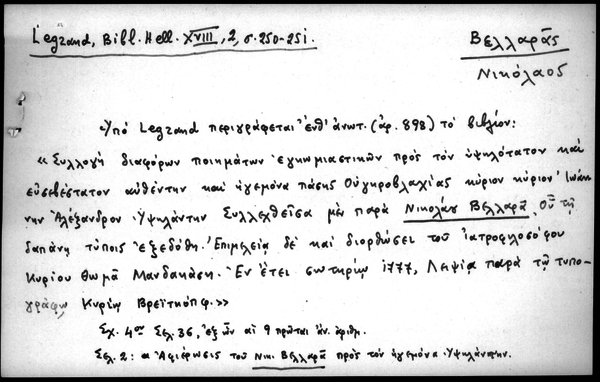 Legrand, Bibl. Hell. XVIII, 2, σ. 250-251.
Βελλαρᾶς
Νικόλαος
Ὑπὸ Legrand περιγράφεται ἐνθ' ἀνωτ. (ἀρ. 898) τὸ βιβλίον:
«Συλλογὴ διαφόρων ποιημάτων ἐγκωμιαστικῶν πρὸς τὸν ὑψηλότατον καὶ
εὐσεβέστατον αὐθέντην καὶ ἡγεμόνα πάσης Οὑγκροβλαχίας κύριον κύριον Ἰωάν-
νην Ἀλέξανδρον Ὑψηλάντην Συλλεχθεῖσα μὲν παρὰ Νικολάου Βελλαρᾶ, Οὗ τῇ
δαπάνῃ τύποις ἐξεδόθη. Ἐπιμελείᾳ δὲ καὶ διορθώσει τοῦ ἰατροφιλοσόφου
Κυρίου Θωμᾶ Μανδακάση. Ἐν ἔτει σωτηρίῳ 1777, Λειψίᾳ παρὰ τῷ τυπο-
γράφῳ Κυρίῳ Βρεϊτκόπφ.»
Σχ. 4ον Σελ. 36, ἐξ ὧν αἱ 9 πρῶται ἀν. ἀριθμ.
Σελ. 2: α Ἀφιέρωσις τοῦ Νικ. Βελλαρᾶ πρὸς τὸν ἡγεμόνα Ὑψηλάντην.